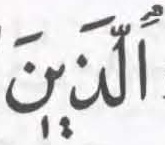 اُلَّذَينَ